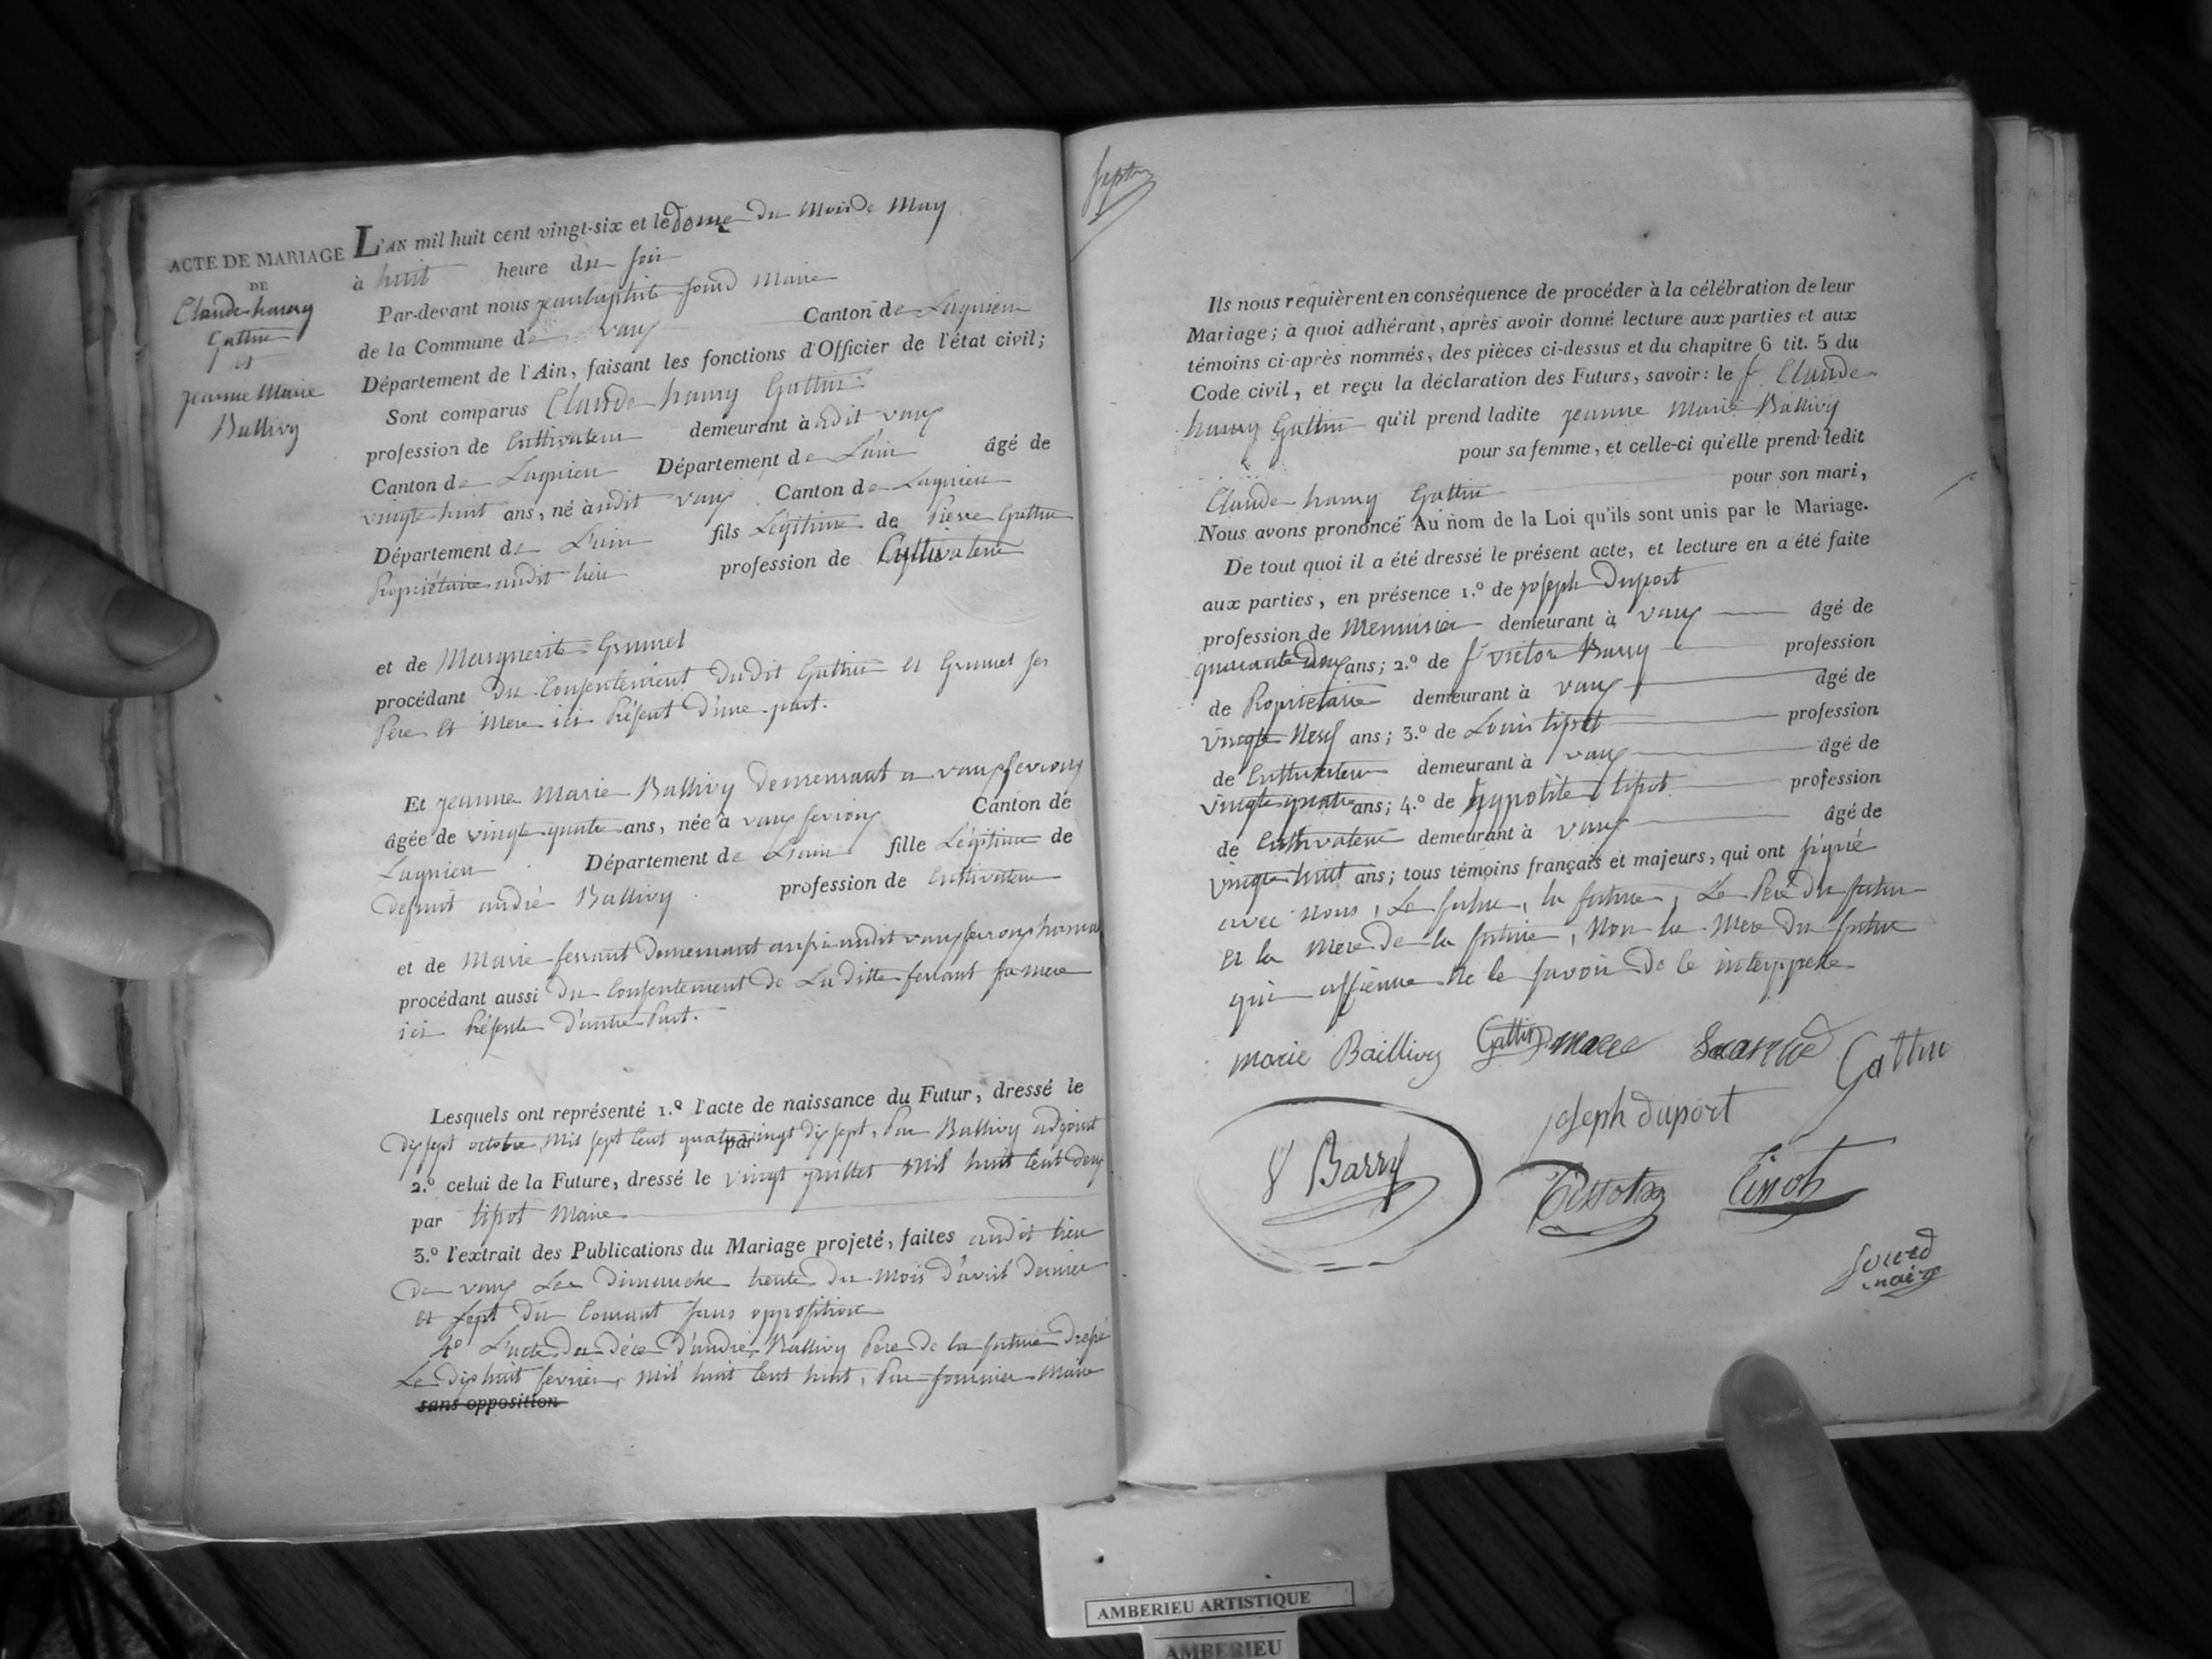 ACTE DE MARIAGE
DE
Claude hamy
Guttin
et
jeanne Marie
Ballivy
L'AN mil huit cent vingt-six et le douze du mois de May
à huit heure du soir
Par-devant nous jeanbaptiste Maire
de la Commune de vaux Canton de Lagnieu
Département de l'Ain, faisant les fonctions d'Officier de l'état civil;
Sont comparus Claude hamy Guttin
profession de Cultivateur demeurant à udit vaux
Canton de Lagnieu Département de L'ain âgé de
vingte huit ans, né à udit vaux Canton de Lagnieu
Département de L'ain fils Légitime de Pierre Guttin
Propriétaire audit lieu profession de Cultivateur
et de Marguerite Grumel
procédant du Consentement dudit Guttin et Grumel ses
Pere et Mere ici Présent d'une part.
Et jeanne Marie Ballivy demeurant a vauxfevroux
âgée de vingte quatre ans, née à vaux fevroux Canton de
Lagnieu Département de L'ain fille Légitime de
defunt andré Ballivy profession de Cultivateur
et de Marie ferrant demeurant aussi audit
procédant aussi du Consentement de La ditte ferrant sa mere
ici Présente d'autre Part.
Lesquels ont représenté 1.º l'acte de naissance du Futur, dressé le
dix sept octobre Mil sept Cent quatre vingt dix sept, par Ballivy adjoint
2.º celui de la Future, dressé le vingt juillet Mil huit Cent deux
par tissot Maire
3.º l'extrait des Publications du Mariage projeté, faites audit lieu
de vaux Les dimanche trente du Mois d'avril dernier
et sept du Courant sans opposition
4º L'acte de décé d'andré Ballivy Pere de la future dressé
Le dix huit fevrier, Mil huit Cent huit, Par fournier Maire
sans opposition
Ils nous requièrent en conséquence de procéder à la célébration de leur
Mariage; à quoi adhérant, après avoir donné lecture aux parties et aux
témoins ci-après nommés, des pièces ci-dessus et du chapitre 6 tit. 5 du
Code civil, et reçu la déclaration des Futurs, savoir: le s. Claude
hamy Guttin qu'il prend ladite jeanne Marie Ballivy
pour sa femme, et celle-ci qu'elle prend ledit
Claude hamy Guttin pour son mari,
Nous avons prononcé Au nom de la Loi qu'ils sont unis par le Mariage.
De tout quoi il a été dressé le présent acte, et lecture en a été faite
aux parties, en présence 1.º de joseph Duport
profession de Menuisier demeurant à vaux âgé de
quarante deux ans; 2.º de s. victor Barry profession
de Propriétaire demeurant à vaux âgé de
vingte Neuf ans; 3.º de Louis tissot profession
de Cultivateur demeurant à vaux âgé de
vingte quatre ans; 4.º de hyppolite tissot profession
de Cultivateur demeurant à vaux âgé de
vingte huit ans; tous témoins français et majeurs, qui ont signé
avec nous, Le futur, la future, Le Pere du futur
et la Mere de la future, Non la Mere du futur
qui ne le savoir de ce
marie Baillivy Gattin Gattin
joseph duport
V Barry Tissot Tissot
maire
AMBERIEU ARTISTIQUE
AMBERIEU